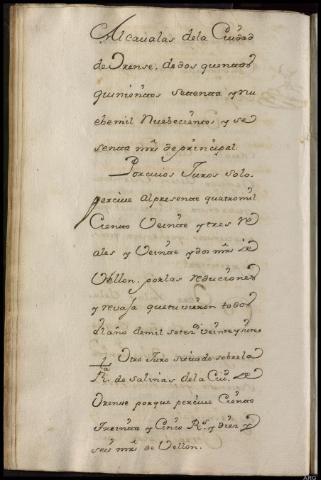 Alcaualas dela Ciudad
de Orense, de dos quentos
quinientos settenta y nu
ebemil Nuebecientos y se
senta mrs de principal
Porcuios Juros solo
perciue alpresente quatromil
Ciento Veinte y tres rre
ales y Veinte y dos mrs de
Vellon, porlas reducciones
y reuaja quetuuieron todos
el año demil setez.s veinte y siete
Otro Juro situado sobrela
R. de salinas dela Ciu.d de
Orense porque perciue Ciento
Treinta y Cinco R.s y diez y
seis mrs de Vellon.
ARG